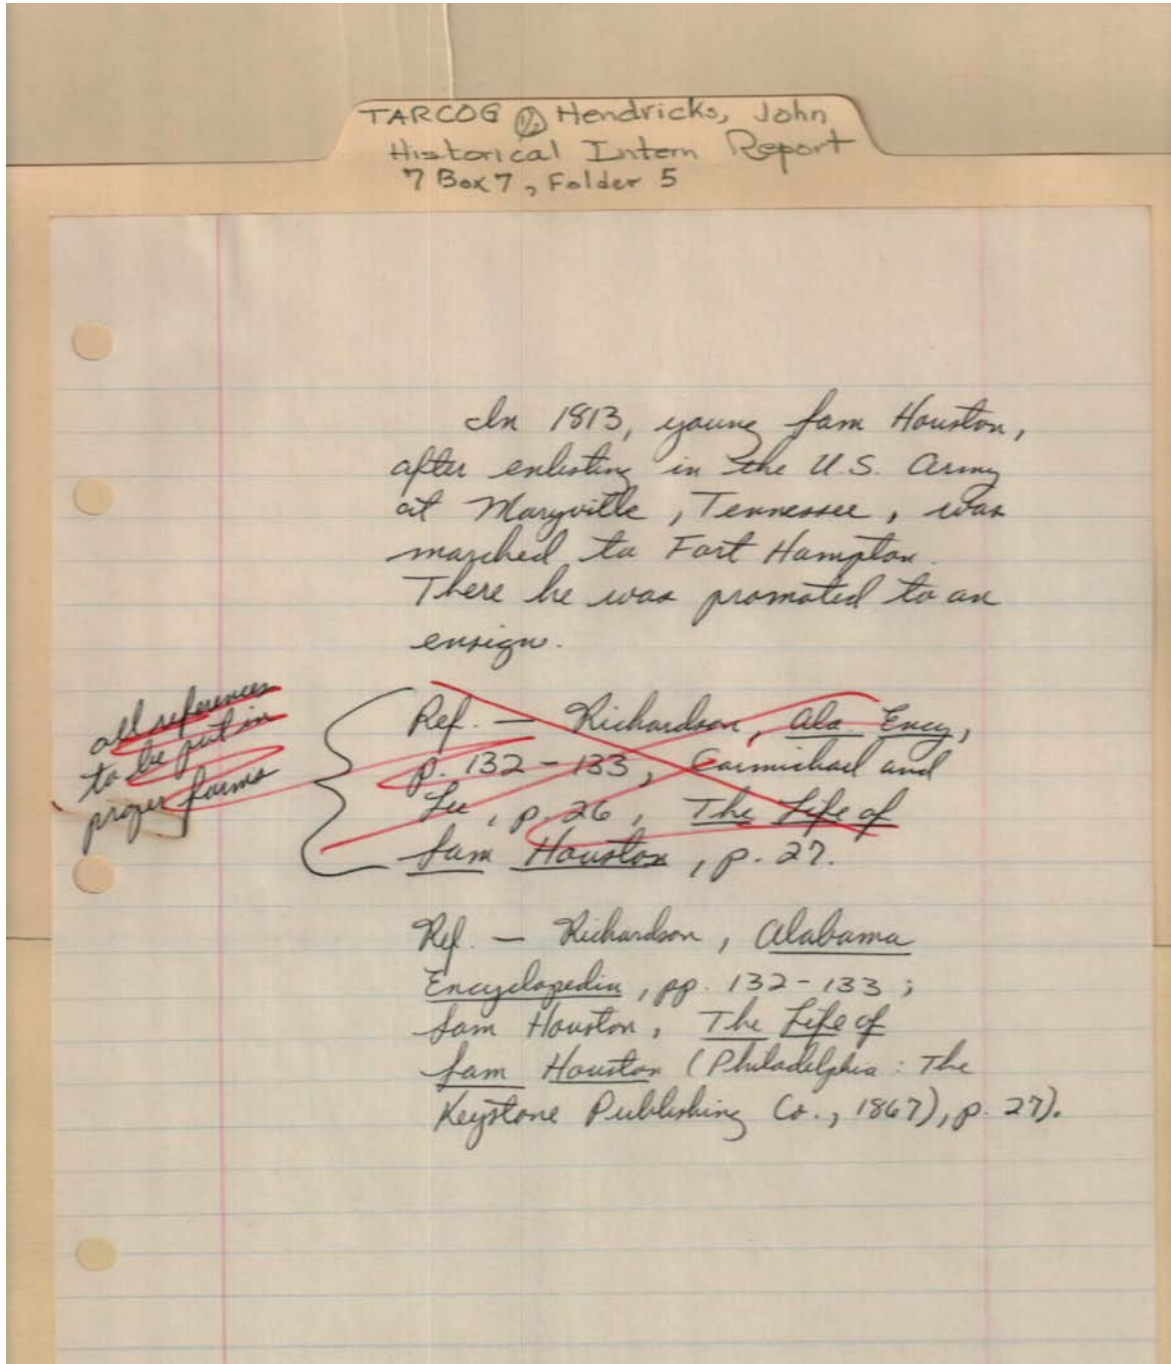 TARCOG 1/2 Hendricks, John
Historical Intern Report
7 Box 7, Folder 5
In 1813, young Sam Houston,
after enlisting in the U.S. Army
at Maryville, Tennessee, was
marched to Fort Hampton.
There he was promoted to an
ensign.
all references
to be put in
proper forms
Ref. — Richardson, Ala. Ency,
p. 132-133, Carmichael and
Lee, p. 26, The Life of
Sam Houston, p. 27.
Ref. — Richardson, Alabama
Encyclopedia, pp. 132-133;
Sam Houston, The Life of
Sam Houston (Philadelphia: The
Keystone Publishing Co., 1867), p. 27).